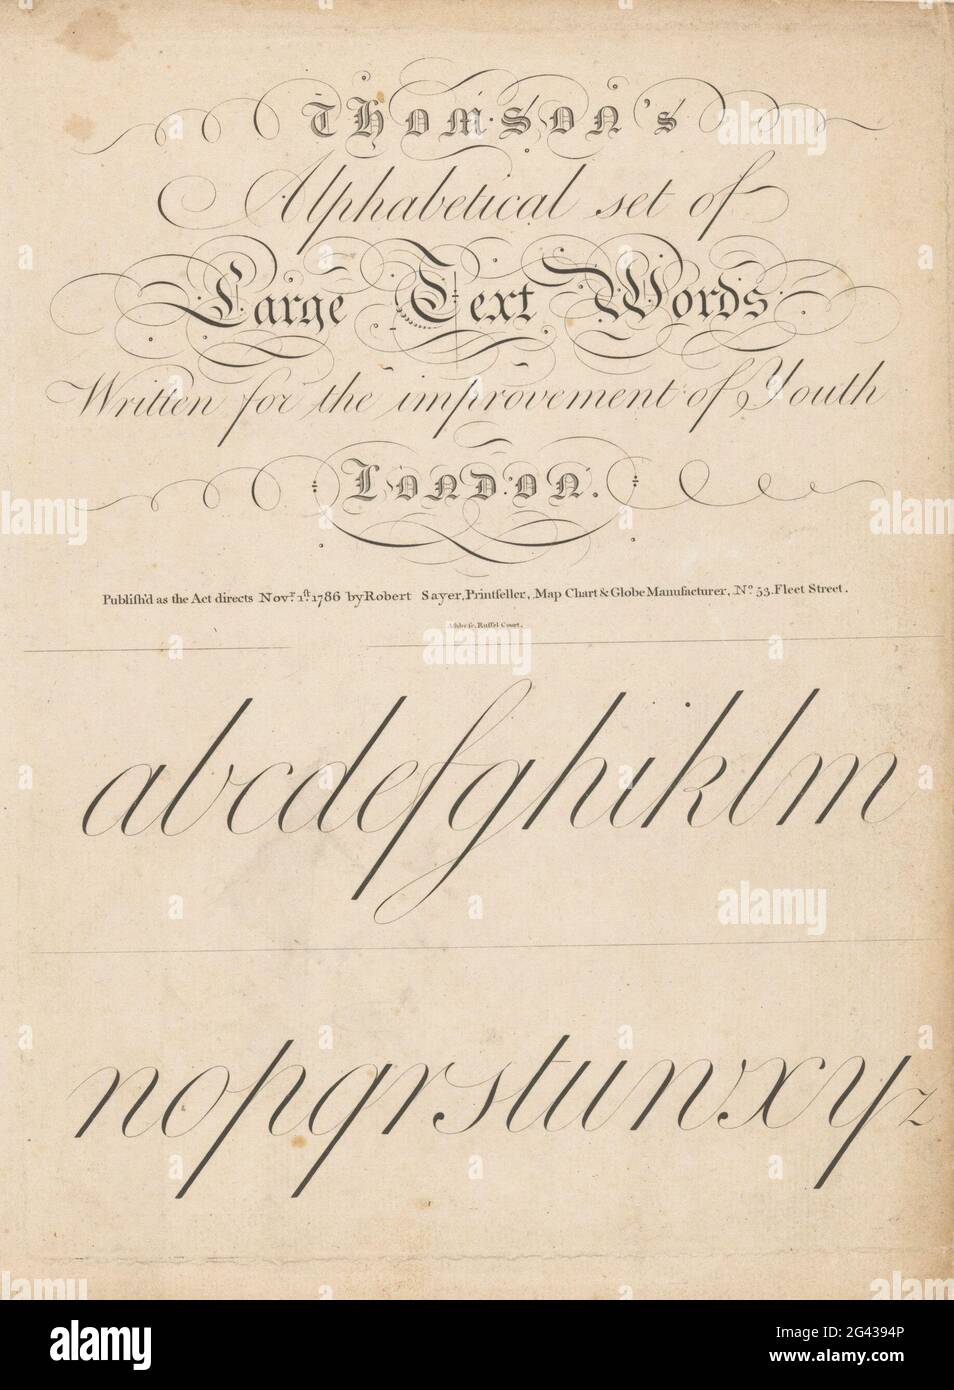 Thomson's
Alphabetical set of
Large Text Words
Written for the improvement of Youth
London.
Publiſh'd as the Act directs Novr. 1ſt. 1786 by Robert Sayer, Printſeller, Map Chart & Globe Manufacturer, No. 53. Fleet Street.
Ruſſel Court.
abcdefghiklm
nopqrstuwxyz
alamy
Image ID: 2G4394P
www.alamy.com